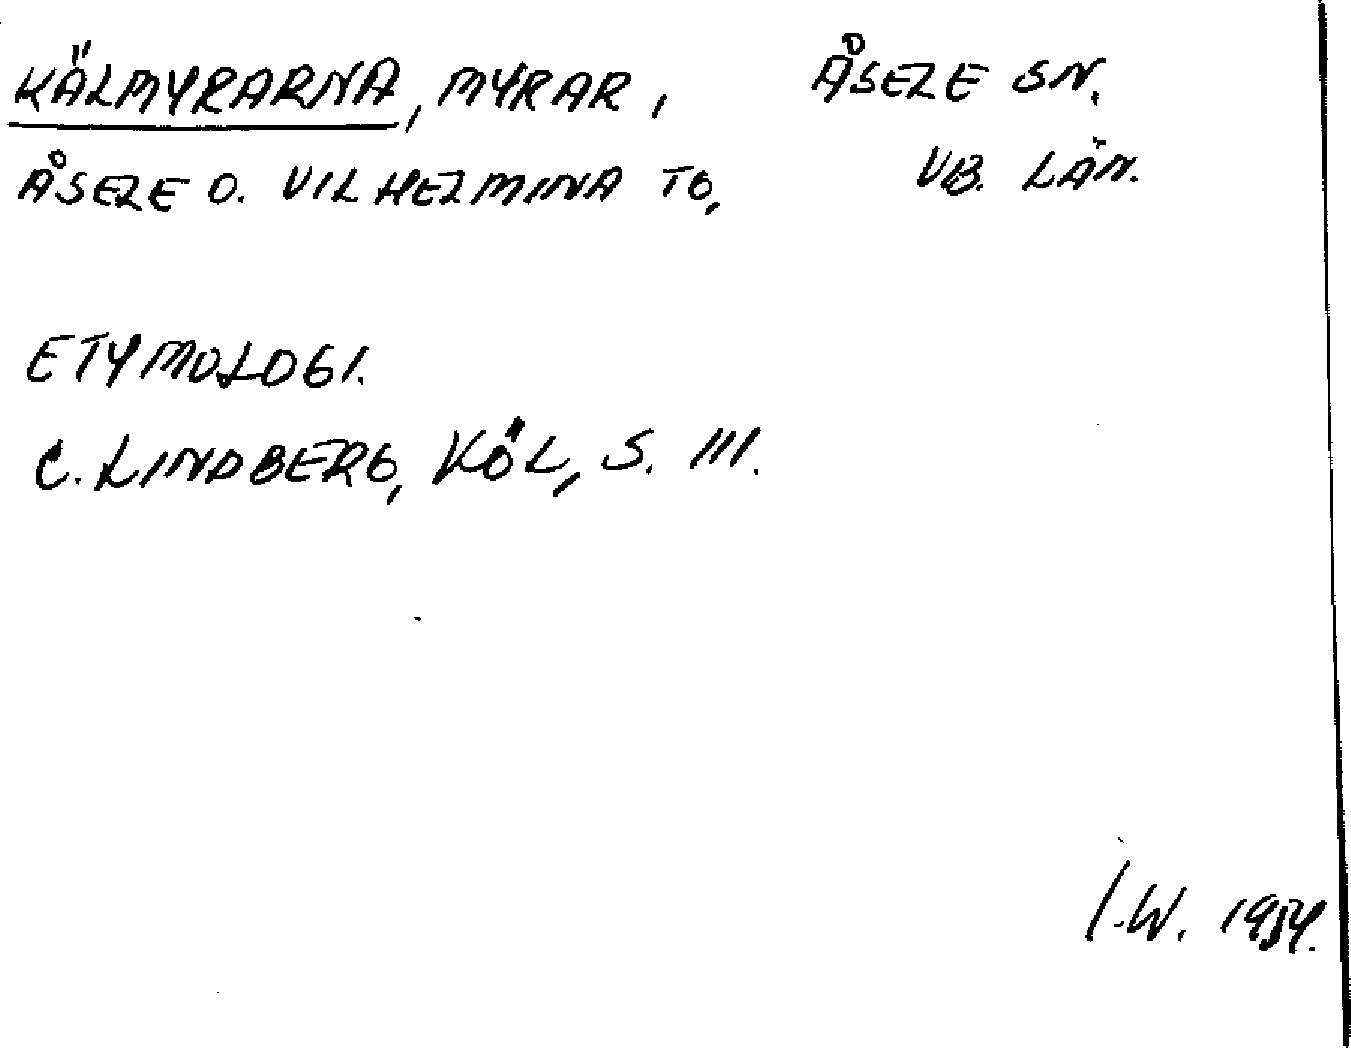 KÄLMYRARNA, MYRAR, ÅSELE SN.
ÅSELE O. VILHELMINA TG, VB. LÄN.
ETYMOLOGI.
C. LINDBERG, KÖL, S. 111.
I.W. 1954.